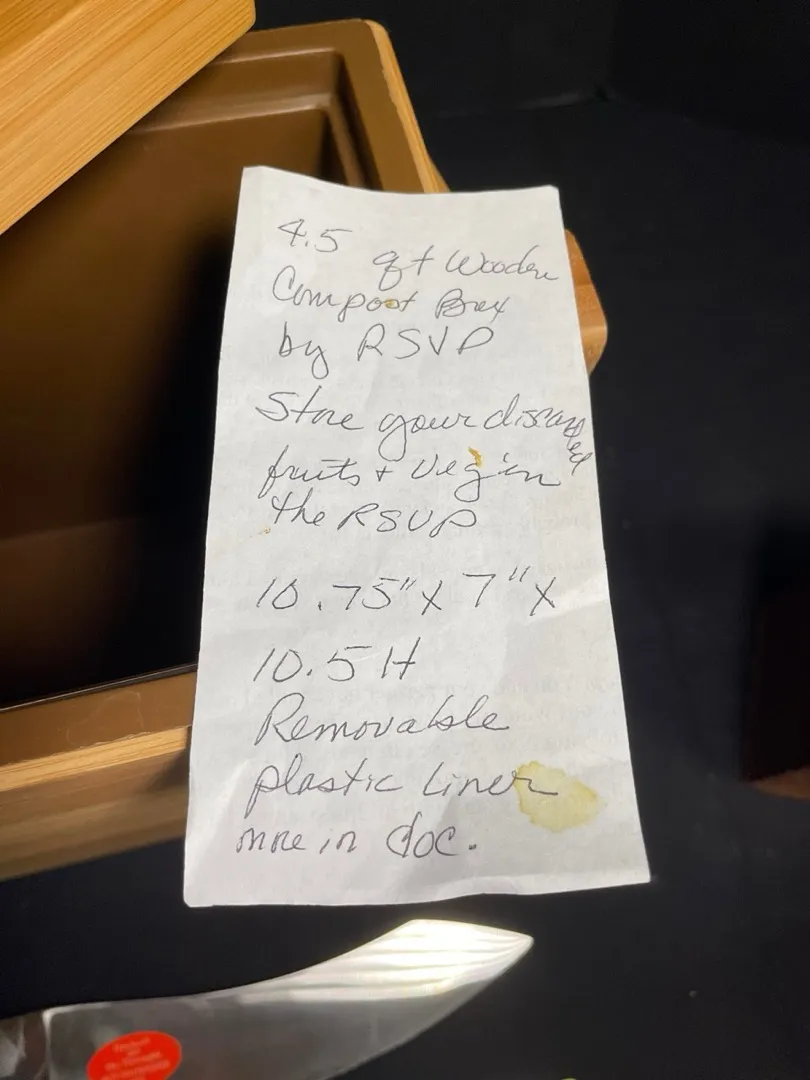 4.5
qt Wooden
Compost Box
by RSVP
Store your discarded
fruits + Veg in
the RSVP
10.75" x 7" x
10.5 H
Removable
plastic Liner
more in doc.